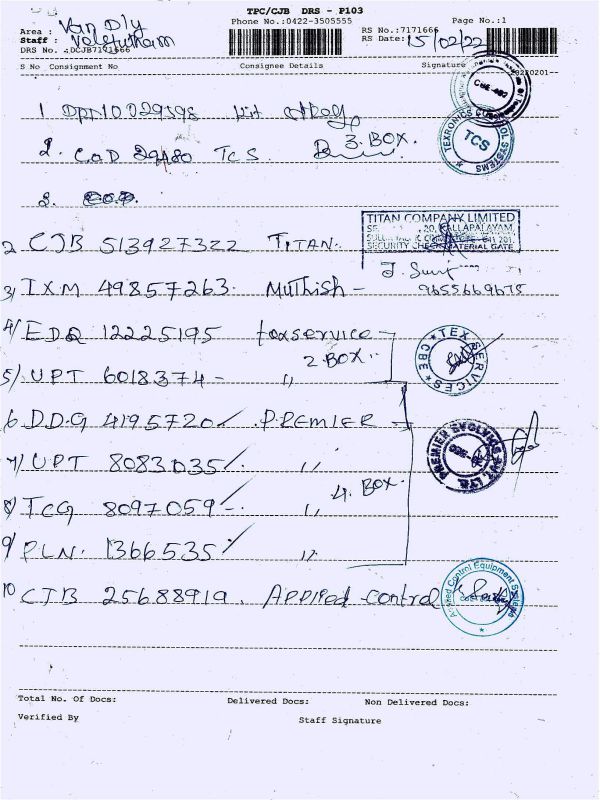 TPC/CJB DRS - P103
Phone No.:0422-3505555 Page No.:1
Area : Van Dly
Staff :
DRS No. :DCJB7171666
RS No.:7171666
RS Date: 15/02/22
S No Consignment No Consignee Details Signature
20220201-
1
3. BOX.
2. COD 29480 TCS
TEXRONICS SYSTEMS
TCS
3.
2 CJB 513927322 TITAN.
TITAN COMPANY LIMITED
SECURITY CHECK MATERIAL GATE
3/ IXM 49857263. Muthish -
9655669675
4/ EDQ 12225195 taxservice -
2 BOX..
TEX SERVICES CBE
5/ UPT 6018374 - ,,
6 D.D.G 4195720/ .PREMIER -
PREMIER EVOLVICS PVT. LTD.
7/ UPT 8083035/. ,,
4. BOX.
8/ TCG 8097059/-. ,,
9/ PLN. 1366535/ ,,
10 CJB 25688919. Applied control
Applied Control Equipment Systems
Total No. Of Docs: Delivered Docs: Non Delivered Docs:
Verified By Staff Signature